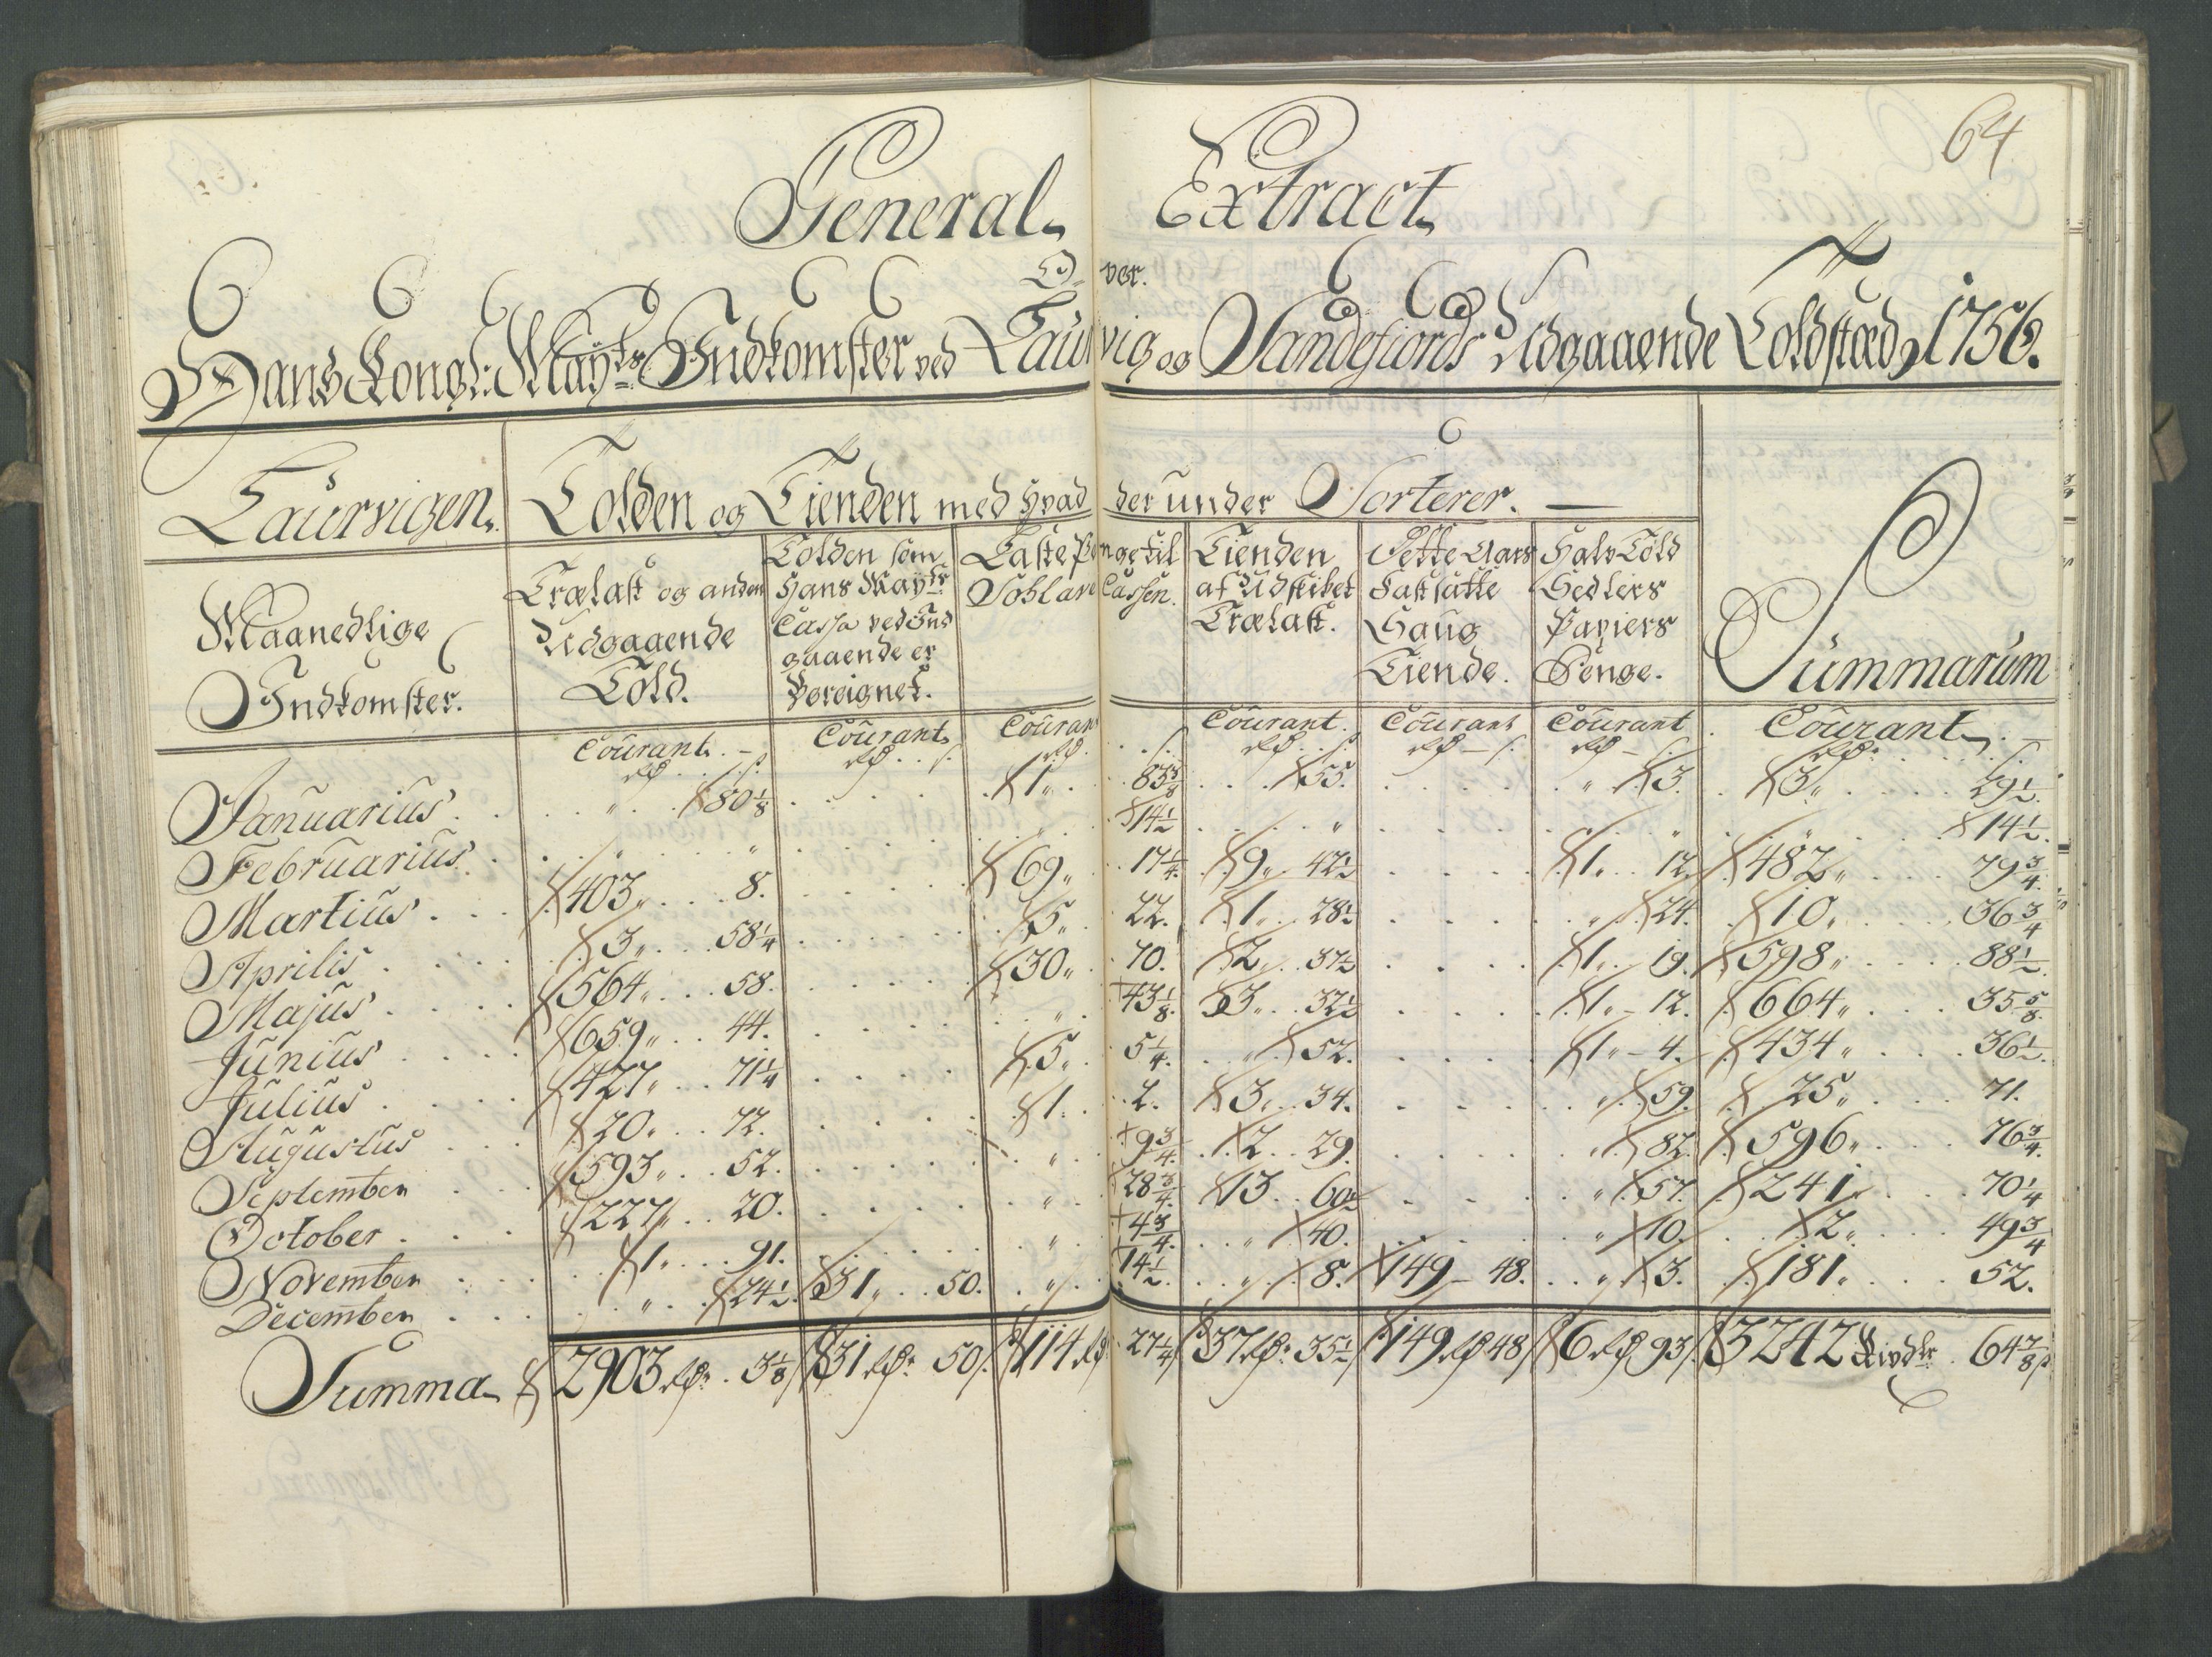 64
General Extract
Over
Hans Kongl: Mayts Indkomster ved Laurvig og Sandefiords Udgaaende Toldstæd 1756.
Laurvigen. Tolden og Tienden med hvad der under Sorterer. Summarum
Maanedlige Indkomster.
Trælast og anden Udgaaende Told.
Tolden som Hans Mayts Cassa ved Indgaaende er
Laste Penge til Cassen.
Tienden af Udskibet Trælast.
Dette Aars Fastsatte Saug Tiende.
Halv Told Sedlers Papiers Penge.
Courant. Courant Courant Courant. Courant Courant Courant
rd s. rd s. rd s. rd s. rd s. rd s. rd s.
Januarius „ 80 1/8 1„ 83 3/8 55. „ 3. 3„ 29 1/2.
Februarius. „ „ „ 14 1/2 „ „ „ 14 1/2.
Martius 403„ 8. 69„ 17 1/4 9„ 42 1/2 1„ 12. 482„ 79 3/4.
Aprilis 3„ 58 1/4 5„ 22. 1„ 28 1/2 „ 24. 10„ 36 3/4
Majus 564„ 58. 30„ 70. 2„ 37 1/2 1„ 19. 598„ 88 1/2.
Junius 659„ 44. „ 43 1/8. 3„ 32 1/2 1„ 12. 664„ 35 5/8.
Julius 427„ 71 1/4 5„ 5 1/4. „ 52. 1„ 4. 434„ 36 1/2.
Augustus 20„ 72. 1„ 2. 3„ 34. „ 59. 25„ 71.
September 593„ 52. „ 9 3/4. 2 29. „ 82. 596„ 76 3/4.
October 227„ 20. „ 28 3/4. 13 60 1/2 „ 57. 241„ 70 1/4
November 1„ 91. „ 4 3/4. „ 40. „ 10. 2„ 49 3/4
December „ 24 1/2. 31„ 50. „ 14 1/2. „ 8. 149 48. „ 3. 181„ 52.
Summa 2903 rd: 3 1/8 s 31 rd: 50 s. 114 rd 27 1/4 s 37 rd: 35 1/2 s 149 rd 48 s 6 rd 93 s. 3242 Rixdlr 64 7/8 s